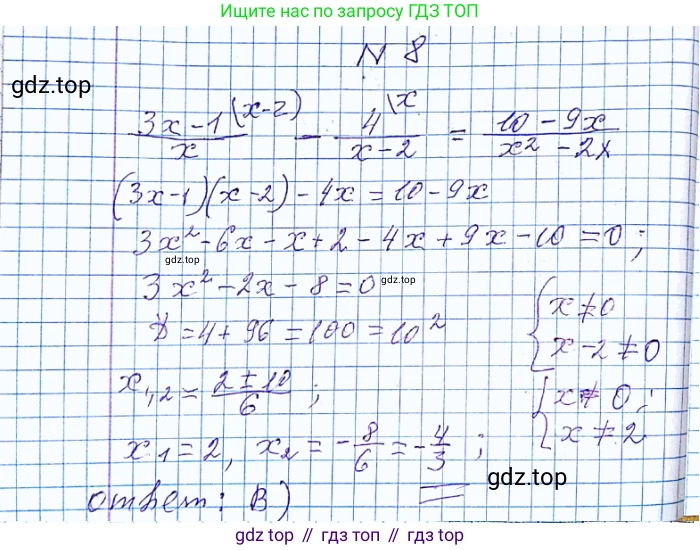 Ищите нас по запросу ГДЗ ТОП
gdz.top
N 8
(3x-1)/x \(x-2) - 4/(x-2) \x = (10-9x)/(x²-2x)
(3x-1)(x-2)-4x=10-9x
3x²-6x-x+2-4x+9x-10=0;
gdz.top
3x²-2x-8=0
gdz.top
x≠0
D=4+96=100=10²
x-2≠0
x₁,₂=(2±10)/6;
x≠0;
x₁=2, x₂=-8/6=-4/3;
x≠2
ответ: В)
gdz.top
gdz.top